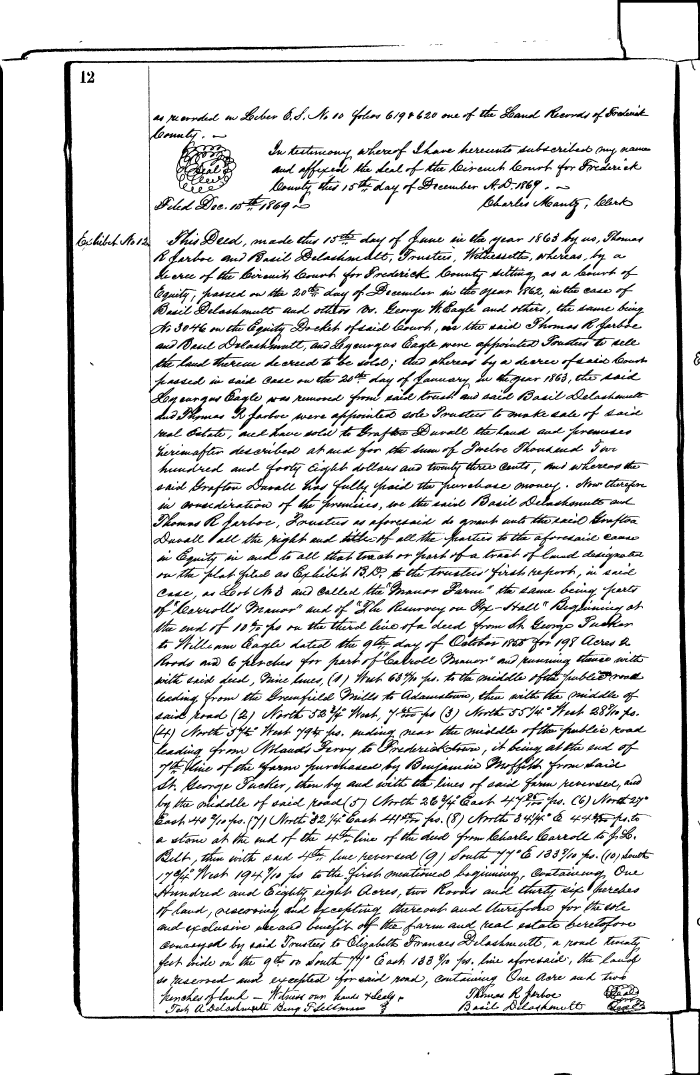 12
as recorded in Liber E.S. No 10 folios 619 & 620 one of the Land Records of Frederick
County. ~
In testimony whereof I have hereunto subscribed my name
and affixed the seal of the Circuit Court for Frederick
County this 15th day of December A.D. 1869. ~
Seal
Filed Dec. 15th 1869 ~ Charles Mantz, Clerk
Exhibit No 12
This Deed, made this 15th day of June in the year 1863 by us, Thomas
R Jarboe and Basil Delashmutt, Trustees, Witnesseth, whereas, by a
decree of the Circuit Court for Frederick County sitting as a Court of
Equity, passed on the 20th day of December in the year 1862, in the case of
Basil Delashmutt and others vs. George W. Eagle and others, the same being
No 3046 on the Equity Docket of said Court, the said Thomas R Jarboe
and Basil Delashmutt, and Lycurgus Eagle were appointed Trustees to sell
the land therein decreed to be sold; And whereas by a decree of said Court
passed in said case on the 20th day of January, in the year 1863, the said
Lycurgus Eagle was removed from said trust and said Basil Delashmutt
and Thomas R Jarboe were appointed sole Trustees to make sale of said
real Estate, and have sold to Grafton Duvall the land and premises
hereinafter described at and for the sum of Twelve Thousand Two
hundred and forty eight dollars and twenty three cents, and whereas the
said Grafton Duvall has fully paid the purchase money. Now therefore
in consideration of the premises, we the said Basil Delashmutt and
Thomas R Jarboe, Trustees as aforesaid do grant unto the said Grafton
Duvall all the right and title of all the parties to the aforesaid cause
in Equity in and to all that tract or part of a tract of land designated
on the plat filed as Exhibit B.D. to the trustees' first report, in said
case, as Lot No 3 and called the "Manor Farm" the same being parts
of "Carrolls Manor" and of "The Resurvey on Hall" Beginning at
the end of 10 ps on the third line of a deed from St. George Tucker
to William Eagle dated the 9th day of October for 198 Acres 2
Roods and 6 perches for part of "Carroll Manor" and running thence with
with said deed, Nine lines, (1) West 63 ps. to the middle of the public road
leading from the Greenfield Mills to Adamstown, then with the middle of
said road (2) North 52¾° West, ps (3) North 55¼° West 28 ps.
(4) North West 79 ps. ending near the middle of the public road
leading from Nolands Ferry to Fredericktown, it being at the end of
7th line of the farm purchased by Benjamin Moffett from said
St. George Tucker, then by and with the lines of said farm reversed, and
by the middle of said road (5) North East 47 ps. (6) North 27°
East 40 ps. (7) North 32¼° East 41 ps. (8) North 34¼° E 44 ps. to
a stone at the end of the 4th line of the deed from Charles Carroll to J. L.
Belt, then with said 4th line reversed (9) South 77° E 133 7/10 ps. (10) South
West 194 ps to the first mentioned beginning, Containing One
Hundred and Eighty eight Acres, two Roods and thirty six perches
of land, reserving and excepting thereout and therefrom for the sole
and exclusive use and benefit of the farm and real estate heretofore
conveyed by said Trustees to Elizabeth Frances Delashmutt, a road twenty
feet wide on the 9th or South 77° East 133 7/10 ps. line aforesaid, the land
so reserved and excepted for said road, containing One Acre and two
perches of land ~ Witness our hands & Seals ~ Thomas R Jarboe Seal
Test, A Delashmutt Benj F Sellman Basil Delashmutt Seal